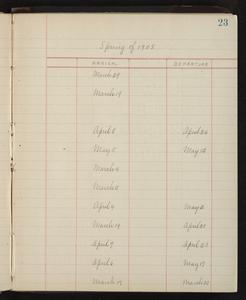 23
Spring of 1905
ARRIVAL DEPARTURE
March 29
March 19
April 8 April 26
May 5 May 12
March 4
March 5
April 4 May 2
March 19 April 23
April 9 April 23
April 6 May 17
March 15 March 22